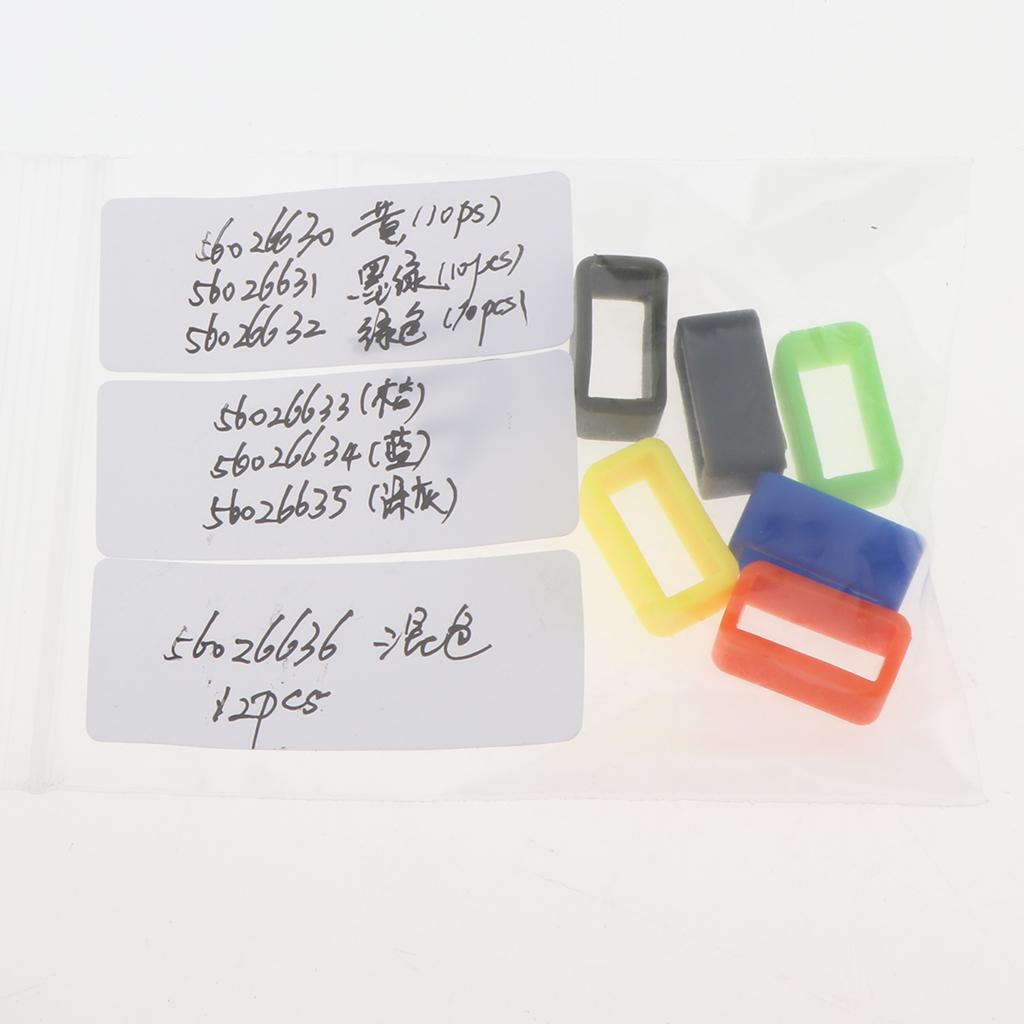 56026630 黄(10ps)
56026631 墨绿(10pcs)
56026632 绿色(10pcs)
56026633(桔)
56026634(蓝)
56026635(深灰)
56026636 混色
12pcs